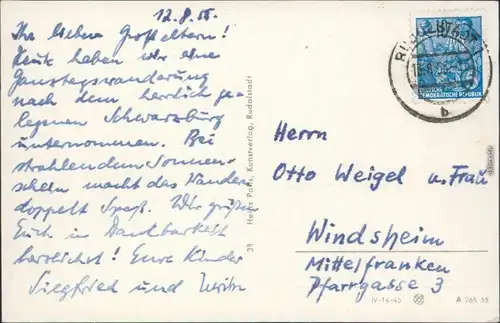 12.8.55.
Ihr lieben Großeltern!
Heute haben wir eine
Ganztagswanderung
nach dem herrlich ge-
legenen Schwarzburg
unternommen. Bei
strahlendem Sonnen-
schein macht das Wandern
doppelt Spaß. Wir grüßen
Euch in Dankbarkeit
herzlichst! Eure Kinder
Siegfried und
39 Heinz Paris, Kunstverlag, Rudolstadt
RUDOLSTADT
b
DEUTSCHE
DEMOKRATISCHE REPUBLIK
Herrn
Otto Weigel u. Frau
Windsheim
Mittelfranken
Pfarrgasse 3
IV-14-45 A 265 55